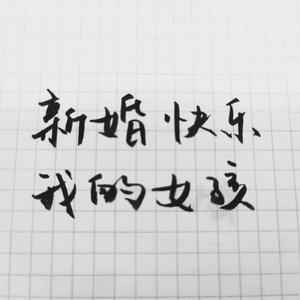 新婚快乐
我的女孩